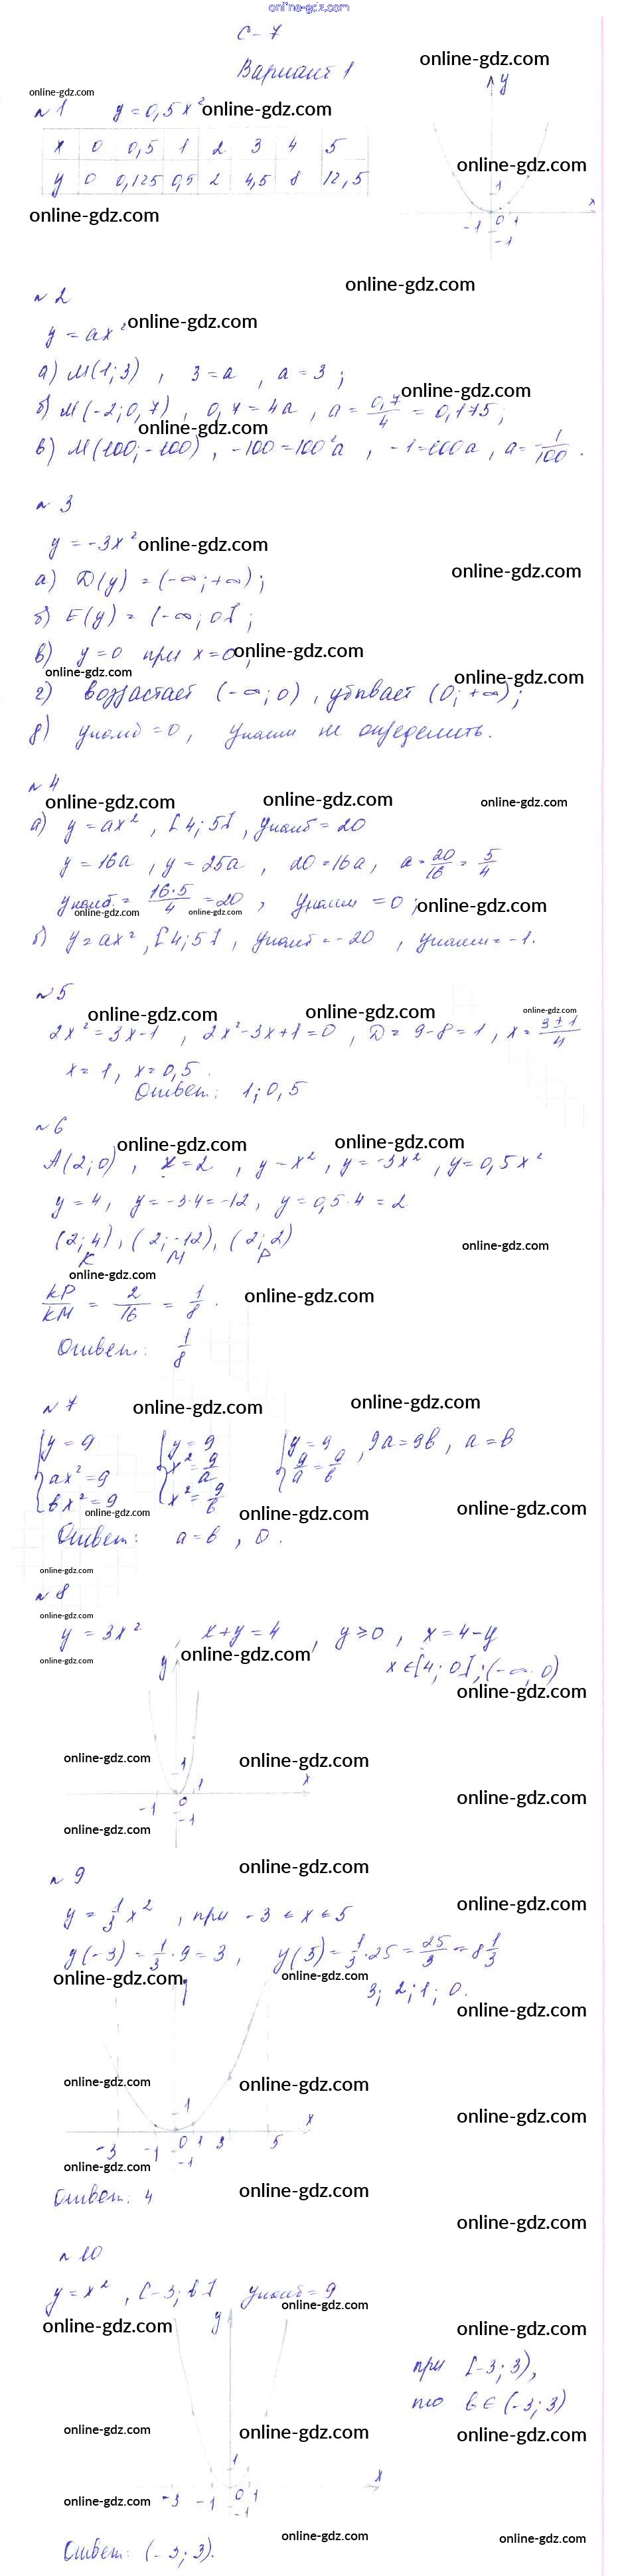 online-gdz.com
С-7
Вариант 1
online-gdz.com
online-gdz.com
№1 y = 0,5x² online-gdz.com
x 0 0,5 1 2 3 4 5
y 0 0,125 0,5 2 4,5 8 12,5
online-gdz.com
online-gdz.com
y
1
x
-1 0 1
-1
online-gdz.com
№2
y = ax² online-gdz.com
а) M(1; 3) , 3 = a , a = 3 ;
online-gdz.com
б) M(-2; 0,7) , 0,7 = 4a , a = 0,7/4 = 0,175 ;
online-gdz.com
в) M(100; -100) , -100 = 100²a , -1 = 100a , a = 1/100 .
№3
y = -3x² online-gdz.com
online-gdz.com
а) D(y) = (-∞; +∞) ;
б) E(y) = (-∞; 0] ;
в) y = 0 при x = 0 ; online-gdz.com
online-gdz.com
online-gdz.com
г) возрастает (-∞; 0) , убывает (0; +∞) ;
д) yнаиб = 0 , yнаим не определить.
№4
online-gdz.com online-gdz.com online-gdz.com
а) y = ax² , [4; 5] , yнаиб = 20
y = 16a , y = 25a , 20 = 16a , a = 20/16 = 5/4
yнаиб = 16·5/4 = 20 , yнаим = 0 ; online-gdz.com
online-gdz.com online-gdz.com
б) y = ax² , [4; 5] , yнаиб = -20 , yнаим = -1.
№5
online-gdz.com online-gdz.com online-gdz.com
2x² = 3x - 1 , 2x² - 3x + 1 = 0 , D = 9 - 8 = 1 , x = 3 ± 1/4
x = 1 , x = 0,5 .
Ответ: 1; 0,5
№6
online-gdz.com online-gdz.com
A(2; 0) , x = 2 , y = x² , y = -3x² , y = 0,5x²
y = 4 , y = -3·4 = -12 , y = 0,5·4 = 2
(2; 4) , (2; -12) , (2; 2)
K M P
online-gdz.com
online-gdz.com
KP/KM = 2/16 = 1/8 . online-gdz.com
Ответ: 1/8
№7 online-gdz.com online-gdz.com
y = 9 y = 9 y = 9 , 9a = 9b , a = b
ax² = 9 x² = 9/a 9/a = 9/b
bx² = 9 x² = 9/b
online-gdz.com online-gdz.com online-gdz.com
Ответ: a = b , 0 .
online-gdz.com
№8
online-gdz.com
y = 3x² , x + y = 4 , y ≥ 0 , x = 4 - y
online-gdz.com y online-gdz.com
x ∈ [4; 0] ; (-∞; 0)
online-gdz.com
online-gdz.com online-gdz.com
1 1 x
online-gdz.com
-1 0
-1
online-gdz.com
№9 online-gdz.com
online-gdz.com
y = 1/3 x² , при -3 ≤ x ≤ 5
y(-3) = 1/3 · 9 = 3 , y(5) = 1/3 · 25 = 25/3 = 8 1/3
online-gdz.com online-gdz.com
3; 2; 1; 0.
online-gdz.com
online-gdz.com online-gdz.com
1 x
online-gdz.com
-3 -1 0 1 3 5
-1
online-gdz.com
Ответ: 4 online-gdz.com
online-gdz.com
№10
y = x² , [-3; b] yнаиб = 9
online-gdz.com
online-gdz.com y online-gdz.com
при [-3; 3) ,
то b ∈ (-3; 3)
online-gdz.com online-gdz.com online-gdz.com
1
x
online-gdz.com -3 -1 0 1
-1
online-gdz.com online-gdz.com
Ответ: (-3; 3).